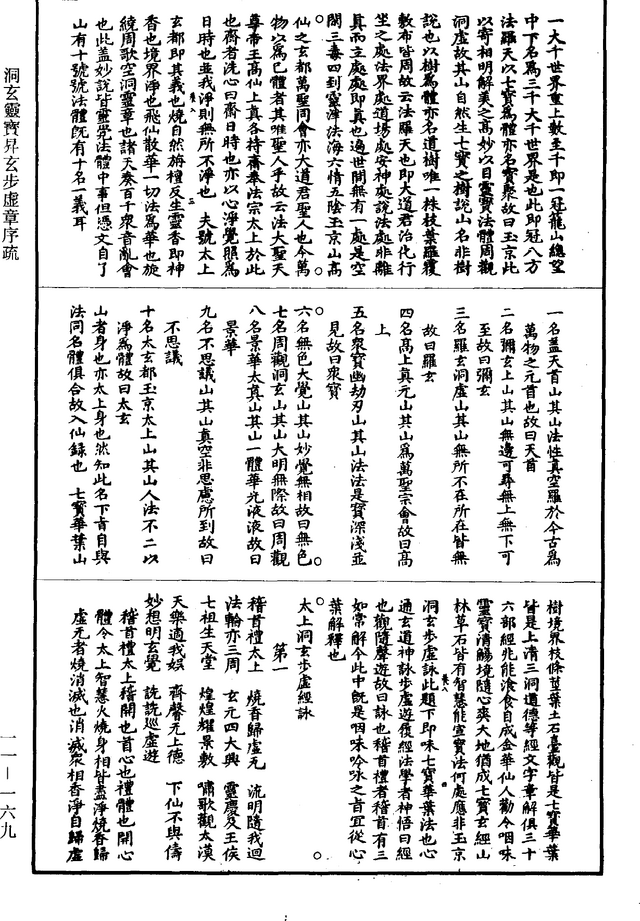 一大千世界重上數至千即一冠籠山總望
中下名爲三千大千世界是也此即冠八方
法羅天以七寶爲體亦名寶聚故曰玉京此
以寄相明解美之髙妙以目靈寶法體周觀
洞虛故其山自然生七寶之樹說山名非樹
說也以樹爲體亦名道樹唯一株枝葉羅覆
敷布皆周故云法羅天也即大道君治化行
坐之處法界處道場處安神處說法處非離
真而立處處即真也遍世間無有一處是空
闕三毒四到寂淨法海六情五陰玉京山髙
仙之玄都萬聖同會亦大道君聖人也今萬
物以爲己體者其唯聖人乎故云法大聖天
尊帝王髙仙上真各持齋奉法宗太上於此
也齋者洗心曰齋日時也亦以心淨覺照爲
日時也並我淨則無所不淨也　夫號太上
玄都即其義也燒自然栴檀反生靈香即神
香也境界淨也飛仙散華一切法爲華也旋
繞周歌空洞靈章也諸天奏百千衆音亂會
也此蓋妙說皆靈覺法體中事但憑文自了
山有十號號法體旣有十名一義耳
一名蓋天首山其山法性真空羅於今古爲
萬物之元首也故曰天首
二名彌玄上山其山無邊可尋無上無下可
至故曰彌玄
三名羅玄洞虛山其山無所不在所在皆無
故曰羅玄
四名髙上真元山其山爲萬聖宗會故曰髙
上
五名衆寶幽劫刃山其山法法是寶深淺並
見故曰衆寶
六名無色大覺山其山妙覺無相故曰無色
七名周觀洞玄山其山大明無際故曰周觀
八名景華太真山其山一體華光液液故曰
景華
九名不思議山其山真空非思慮所到故曰
不思議
十名太玄都玉京太上山其山人法不二以
淨爲體故曰太玄
山者身也亦太上身也然知此名下肯自與
法同名體俱合故入仙錄也　七寶華葉山
樹境界枝條莖葉土石臺觀皆是七寶華葉
皆是上清三洞道德等經文字章解俱三十
六部經兆能飡食自成金華仙人勸令咽味
靈寶清觴境隨心爽大地猶成七寶玄經山
林草石皆有智慧能宣寶法何處應非玉京
洞玄步虛詠此題下即味七寶華葉法也心
通玄道神詠步虛遊履經法學者神悟曰經
也觀隨聲遊故曰詠也稽首禮者稽首有三
如常解今此中旣是咽味吟詠之音宜從心
葉解釋也
太上洞玄步虛經詠
第一
稽首禮太上　燒香歸虛无　流明隨我迴
法輪亦三周　玄元四大興　靈慶及王侯
七祖生天堂　煌煌耀景敷　嘯歌觀太漠
天樂適我娛　齊馨无上德　下仙不與儔
妙想明玄覺　詵詵巡虛遊
稽首禮太上稽開也首心也禮體也開心
體令太上智慧火燒身相皆盡淨燒香歸
虛无者燒消滅也消滅衆相香淨自歸虛
洞玄靈寶昇玄步虛章序疏
一一－一六九